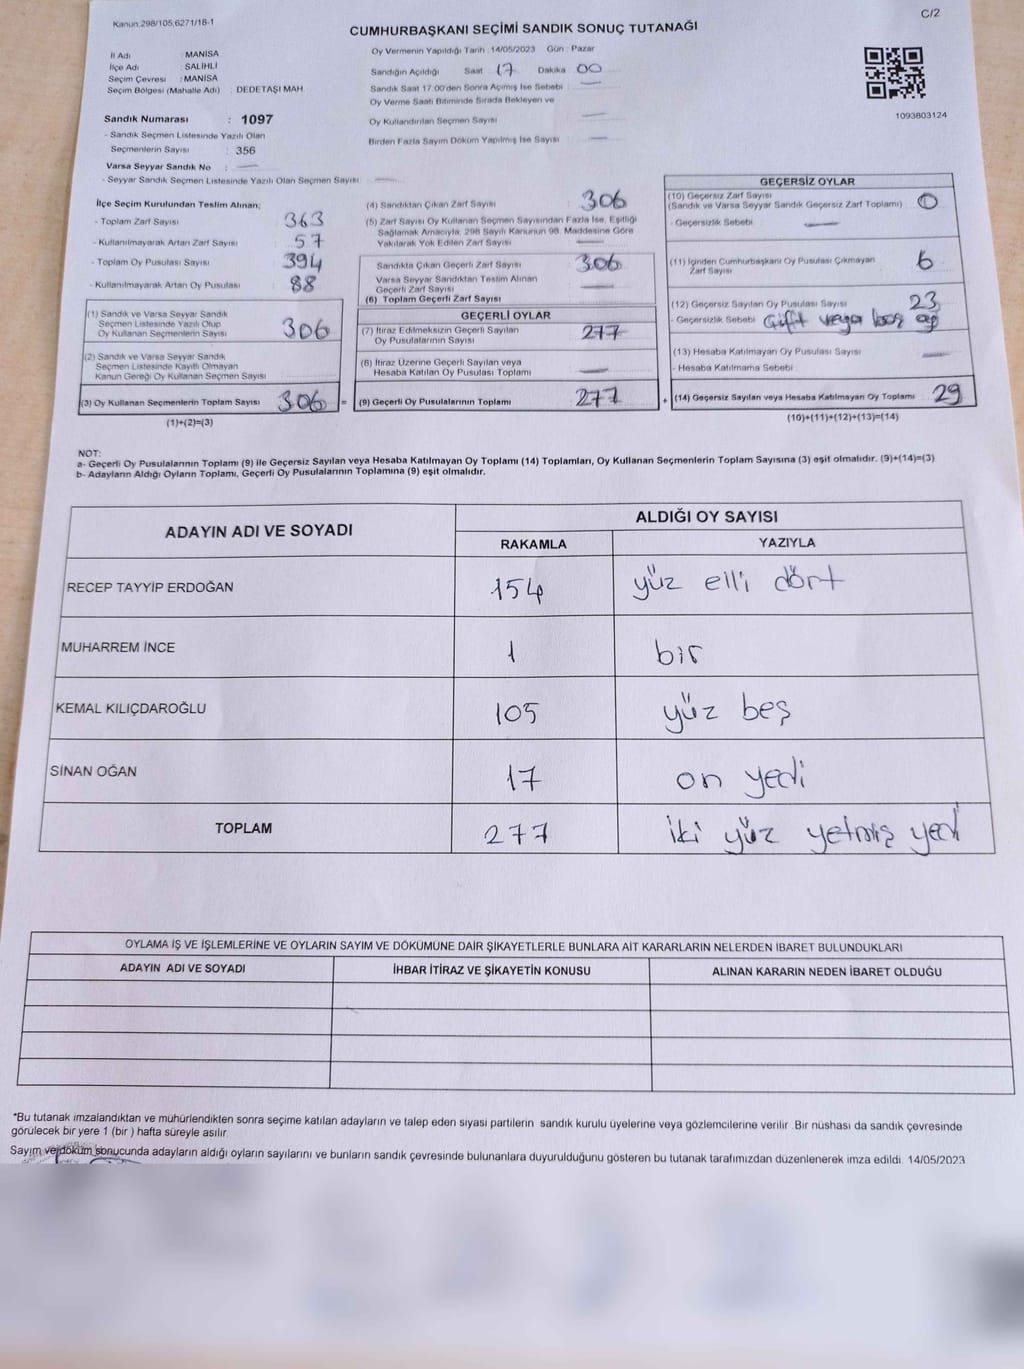 Kanun 298/105,6271/18-1
C/2
CUMHURBAŞKANI SEÇİMİ SANDIK SONUÇ TUTANAĞI
İl Adı : MANİSA
İlçe Adı : SALİHLİ
Seçim Çevresi : MANİSA
Seçim Bölgesi (Mahalle Adı) : DEDETAŞI MAH.
Sandık Numarası : 1097
- Sandık Seçmen Listesinde Yazılı Olan
Seçmenlerin Sayısı : 356
Varsa Seyyar Sandık No : —
- Seyyar Sandık Seçmen Listesinde Yazılı Olan Seçmen Sayısı: —
Oy Vermenin Yapıldığı Tarih : 14/05/2023 Gün : Pazar
Sandığın Açıldığı Saat 17 Dakika 00
Sandık Saat 17:00'den Sonra Açılmış İse Sebebi : —
Oy Verme Saati Bitiminde Sırada Bekleyen ve
Oy Kullandırılan Seçmen Sayısı —
Birden Fazla Sayım Döküm Yapılmış İse Sayısı —
1093803124
İlçe Seçim Kurulundan Teslim Alınan;
- Toplam Zarf Sayısı 363
- Kullanılmayarak Artan Zarf Sayısı 57
- Toplam Oy Pusulası Sayısı 394
- Kullanılmayarak Artan Oy Pusulası 88
(1) Sandık ve Varsa Seyyar Sandık
Seçmen Listesinde Yazılı Olup
Oy Kullanan Seçmenlerin Sayısı 306
(2) Sandık ve Varsa Seyyar Sandık
Seçmen Listesinde Kayıtlı Olmayan
Kanun Gereği Oy Kullanan Seçmen Sayısı : —
(3) Oy Kullanan Seçmenlerin Toplam Sayısı 306 =
(1)+(2)=(3)
(4) Sandıktan Çıkan Zarf Sayısı 306
(5) Zarf Sayısı Oy Kullanan Seçmen Sayısından Fazla İse, Eşitliği
Sağlamak Amacıyla, 298 Sayılı Kanunun 98. Maddesine Göre
Yakılarak Yok Edilen Zarf Sayısı —
Sandıkta Çıkan Geçerli Zarf Sayısı 306
Varsa Seyyar Sandıktan Teslim Alınan
Geçerli Zarf Sayısı —
(6) Toplam Geçerli Zarf Sayısı
GEÇERLİ OYLAR
(7) İtiraz Edilmeksizin Geçerli Sayılan
Oy Pusulalarının Sayısı 277
(8) İtiraz Üzerine Geçerli Sayılan veya
Hesaba Katılan Oy Pusulası Toplamı —
(9) Geçerli Oy Pusulalarının Toplamı 277 +
GEÇERSİZ OYLAR
(10) Geçersiz Zarf Sayısı
(Sandık ve Varsa Seyyar Sandık Geçersiz Zarf Toplamı) 0
- Geçersizlik Sebebi —
(11) İçinden Cumhurbaşkanı Oy Pusulası Çıkmayan
Zarf Sayısı 6
(12) Geçersiz Sayılan Oy Pusulası Sayısı 23
- Geçersizlik Sebebi Çift veya boş oy
(13) Hesaba Katılmayan Oy Pusulası Sayısı —
- Hesaba Katılmama Sebebi
(14) Geçersiz Sayılan veya Hesaba Katılmayan Oy Toplamı 29
(10)+(11)+(12)+(13)=(14)
NOT:
a- Geçerli Oy Pusulalarının Toplamı (9) ile Geçersiz Sayılan veya Hesaba Katılmayan Oy Toplamı (14) Toplamları, Oy Kullanan Seçmenlerin Toplam Sayısına (3) eşit olmalıdır. (9)+(14)=(3)
b- Adayların Aldığı Oyların Toplamı, Geçerli Oy Pusulalarının Toplamına (9) eşit olmalıdır.
ADAYIN ADI VE SOYADI
ALDIĞI OY SAYISI
RAKAMLA YAZIYLA
RECEP TAYYİP ERDOĞAN 154 yüz elli dört
MUHARREM İNCE 1 bir
KEMAL KILIÇDAROĞLU 105 yüz beş
SİNAN OĞAN 17 on yedi
TOPLAM 277 iki yüz yetmiş yedi
OYLAMA İŞ VE İŞLEMLERİNE VE OYLARIN SAYIM VE DÖKÜMÜNE DAİR ŞİKAYETLERLE BUNLARA AİT KARARLARIN NELERDEN İBARET BULUNDUKLARI
ADAYIN ADI VE SOYADI İHBAR İTİRAZ VE ŞİKAYETİN KONUSU ALINAN KARARIN NEDEN İBARET OLDUĞU
*Bu tutanak imzalandıktan ve mühürlendikten sonra seçime katılan adayların ve talep eden siyasi partilerin sandık kurulu üyelerine veya gözlemcilerine verilir. Bir nüshası da sandık çevresinde
görülecek bir yere 1 (bir ) hafta süreyle asılır.
Sayım ve döküm sonucunda adayların aldığı oyların sayılarını ve bunların sandık çevresinde bulunanlara duyurulduğunu gösteren bu tutanak tarafımızdan düzenlenerek imza edildi. 14/05/2023